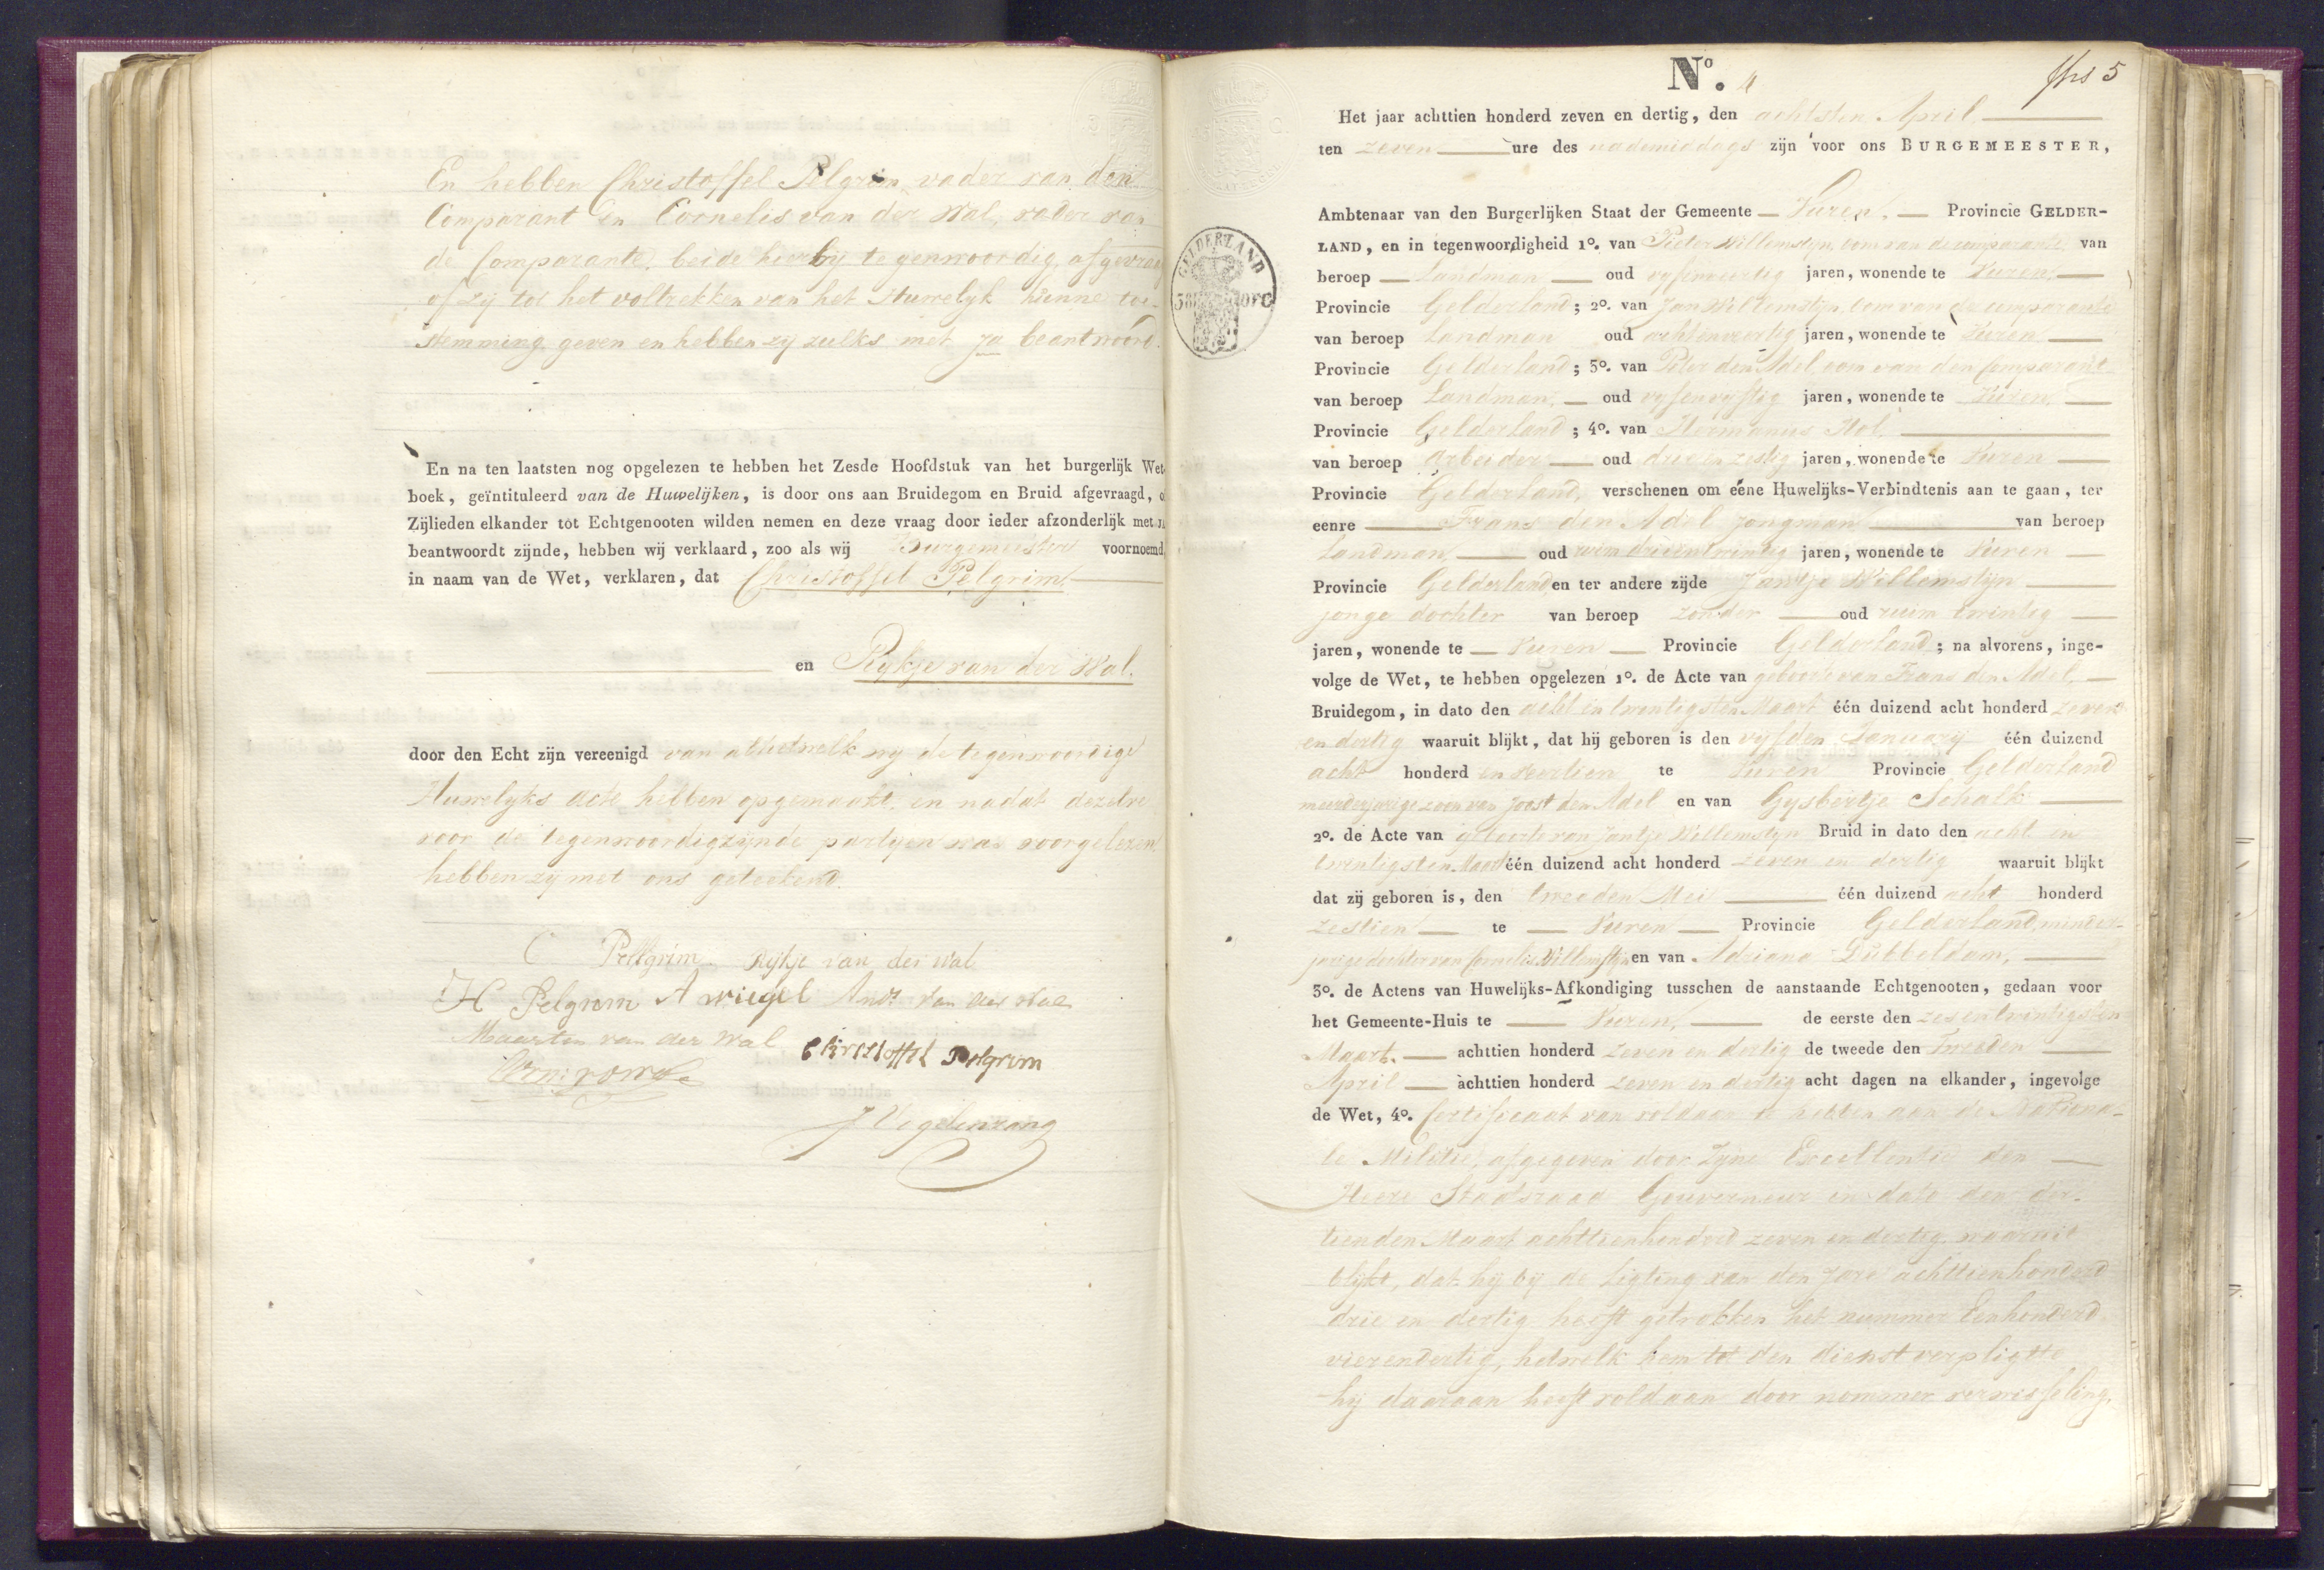 En hebben Christoffel Pelgrim, vader van den
Comparant en Cornelis van der Wal, vader van
de Comparante, beide hierby tegenwoordig, afgevraag
of zij tot het voltrekken van het Huwelyk hunne toe-
stemming geven en hebben zy zulks met ja beantwoord.
En na ten laatsten nog opgelezen te hebben het Zesde Hoofdstuk van het burgerlijk Wet-
boek, geïntituleerd van de Huwelijken, is door ons aan Bruidegom en Bruid afgevraagd, o
Zijlieden elkander tot Echtgenooten wilden nemen en deze vraag door ieder afzonderlijk met
beantwoordt zijnde, hebben wij verklaard, zoo als wij Burgemeester voornoemd,
in naam van de Wet, verklaren, dat Christoffel Pelgrim
en Rykje van der Wal.
door den Echt zijn vereenigd van al hetwelk wy de tegenwoordige
Huwelyks acte hebben opgemaakt, en nadat dezelve
voor de tegenwoordigzynde partyen was voorgelezen
hebben zy met ons geteekend.
C Pellgrim Rijkje van der Wal
H Pelgrom A wiegel Andr van der Wal
Maarten van der Wal Christoffel Pelgrim
J Vogelenzang
No. 4
Het jaar achttien honderd zeven en dertig, den achtsten April
ten zeven ure des nademiddags zijn voor ons BURGEMEESTER,
Ambtenaar van den Burgerlijken Staat der Gemeente Vuren. Provincie GELDER-
LAND, en in tegenwoordigheid 1o. van Pieter Willemstyn, oom van de comparante van
beroep Landman oud vyfenveertig jaren, wonende te Vuren.
Provincie Gelderland; 2o. van Jan Willemstijn, oom van de comparante
van beroep Landman oud achtenveertig jaren, wonende te Vuren
Provincie Gelderland; 3o. van Peter den Adel, oom van den Comparant
van beroep Landman. oud vyfenvyftig jaren, wonende te Vuren.
Provincie Gelderland; 4o. van Hermanus Hol
van beroep Arbeider oud drie en zestig jaren, wonende te Vuren
Provincie Gelderland, verschenen om eene Huwelijks-Verbindtenis aan te gaan, ter
eenre Frans den Adel Jongman van beroep
Landman oud ruim drieentwintig jaren, wonende te Vuren
Provincie Gelderland en ter andere zijde Jantje Willemstyn
jonge dochter van beroep zonder oud ruim twintig
jaren, wonende te Vuren Provincie Gelderland; na alvorens, inge-
volge de Wet, te hebben opgelezen 1o. de Acte van geboorte van Frans den Adel,
Bruidegom, in dato den acht en twentigsten Maart één duizend acht honderd zeven
en dertig waaruit blijkt, dat hij geboren is den vyfden January één duizend
acht honderd en veertien te Vuren Provincie Gelderland
meerderjarige zoon van Joost den Adel en van Gysbertje Schalk
2o. de Acte van geboorte van Jantje Willemstyn Bruid in dato den acht en
twentigsten Maart één duizend acht honderd zeven en dertig waaruit blijkt
dat zij geboren is, den tweeden Mei één duizend acht honderd
zestien te Vuren Provincie Gelderland, minder-
jarige dochter van Cornelis Willemstijn en van Adriana Dubbeldam,
3o. de Actens van Huwelijks-Afkondiging tusschen de aanstaande Echtgenooten, gedaan voor
het Gemeente-Huis te Vuren, de eerste den zesentwintigsten
Maart. achttien honderd zeven en dertig de tweede den Tweeden
April achttien honderd zeven en dertig acht dagen na elkander, ingevolge
de Wet, 4o. Certificaat van voldaan te hebben aan de Nationa-
le Militie, afgegeven door Zyne Excellentie den
Heere Staadsraad Gouverneur in dato den der-
tienden Maart achttienhonderd zeven en dertig, waaruit
blykt, dat hij by de ligting van den Jare achttienhonderd
drie en dertig heeft getrokken het nummer Eenhonderd
vierendertig, hetwelk hem tot den dienst verpligtte
hij daaraan heeft voldaan door nommer verwisseling.
GELDERLAND